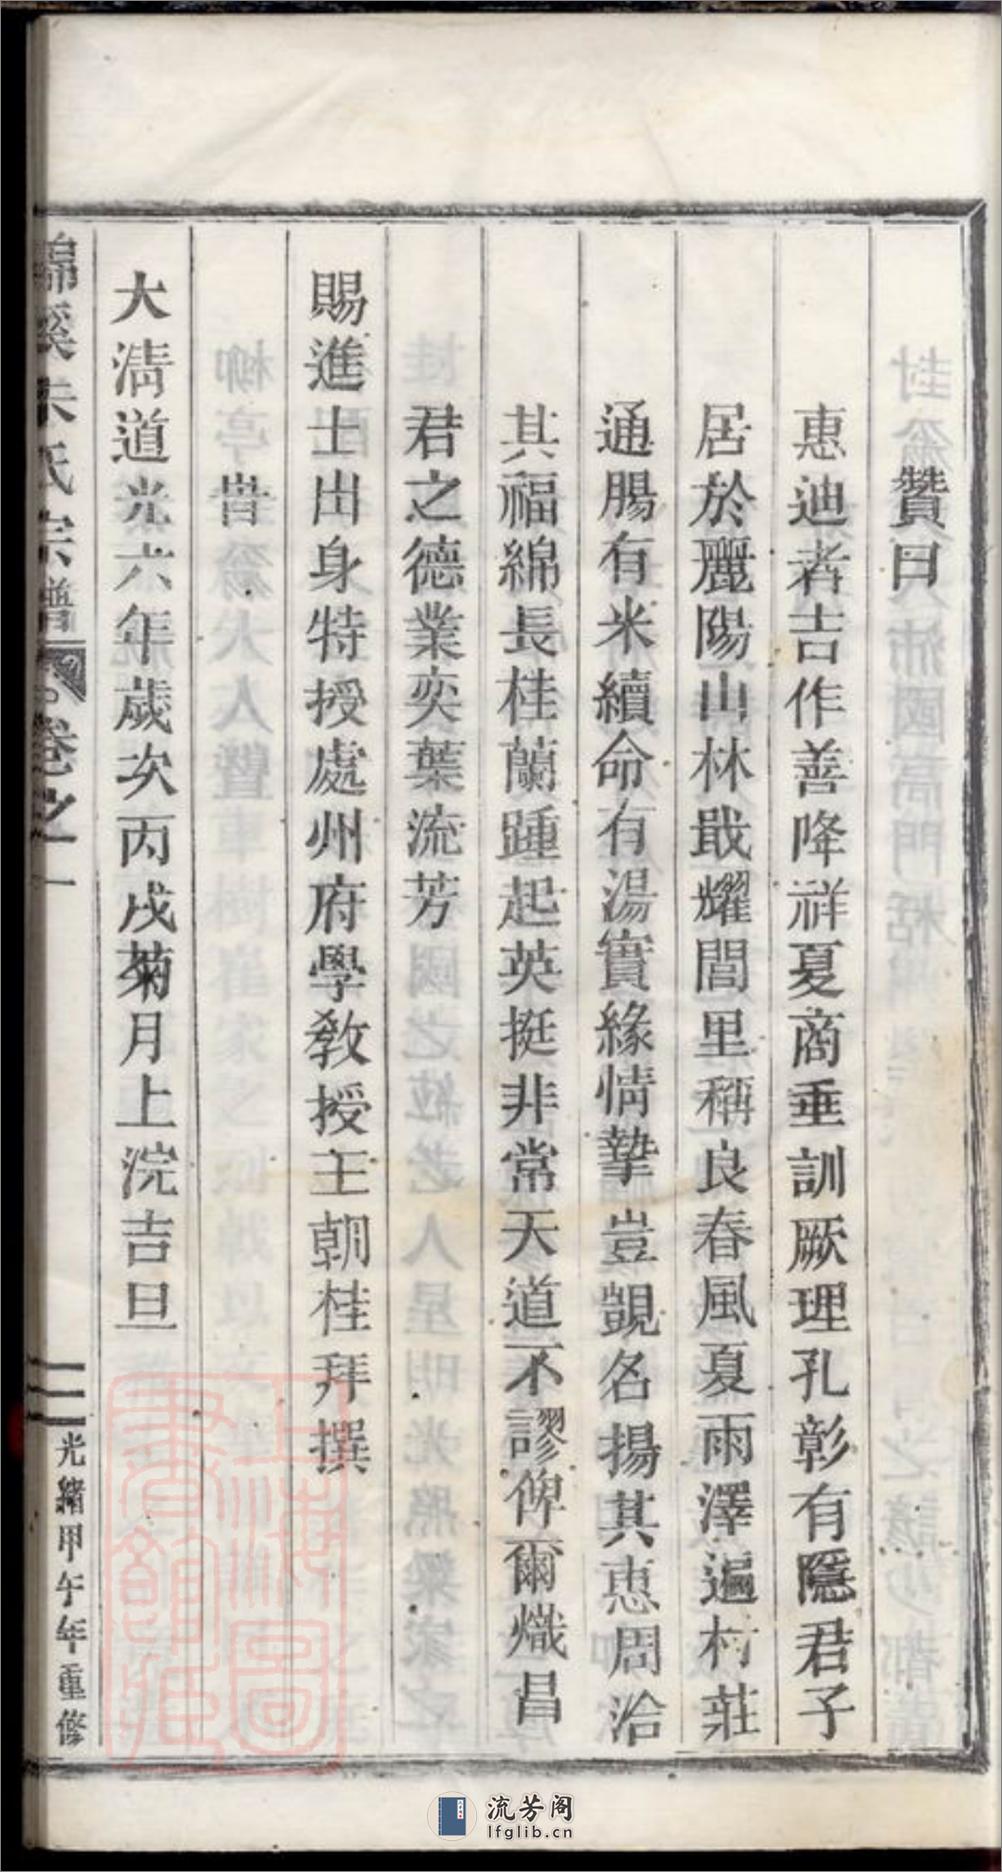 贊曰
惠迪者吉作善降祥夏商垂訓厥理孔彰有隱君子
居於麗陽山林戢耀閭里稱良春風夏雨澤遍村莊
通腸有米續命有湯實緣情摯豈覬名揚其惠周洽
其福綿長桂蘭踵起英挺非常天道不謬俾爾熾昌
君之德業奕葉流芳
賜進士出身特授處州府學教授王朝桂拜撰
旹
大清道光六年歲次丙戌菊月上浣吉旦
錦溪朱氏宗譜 卷之一
光緒甲午年重修
上海圖書館藏
流芳阁
lfglib.cn